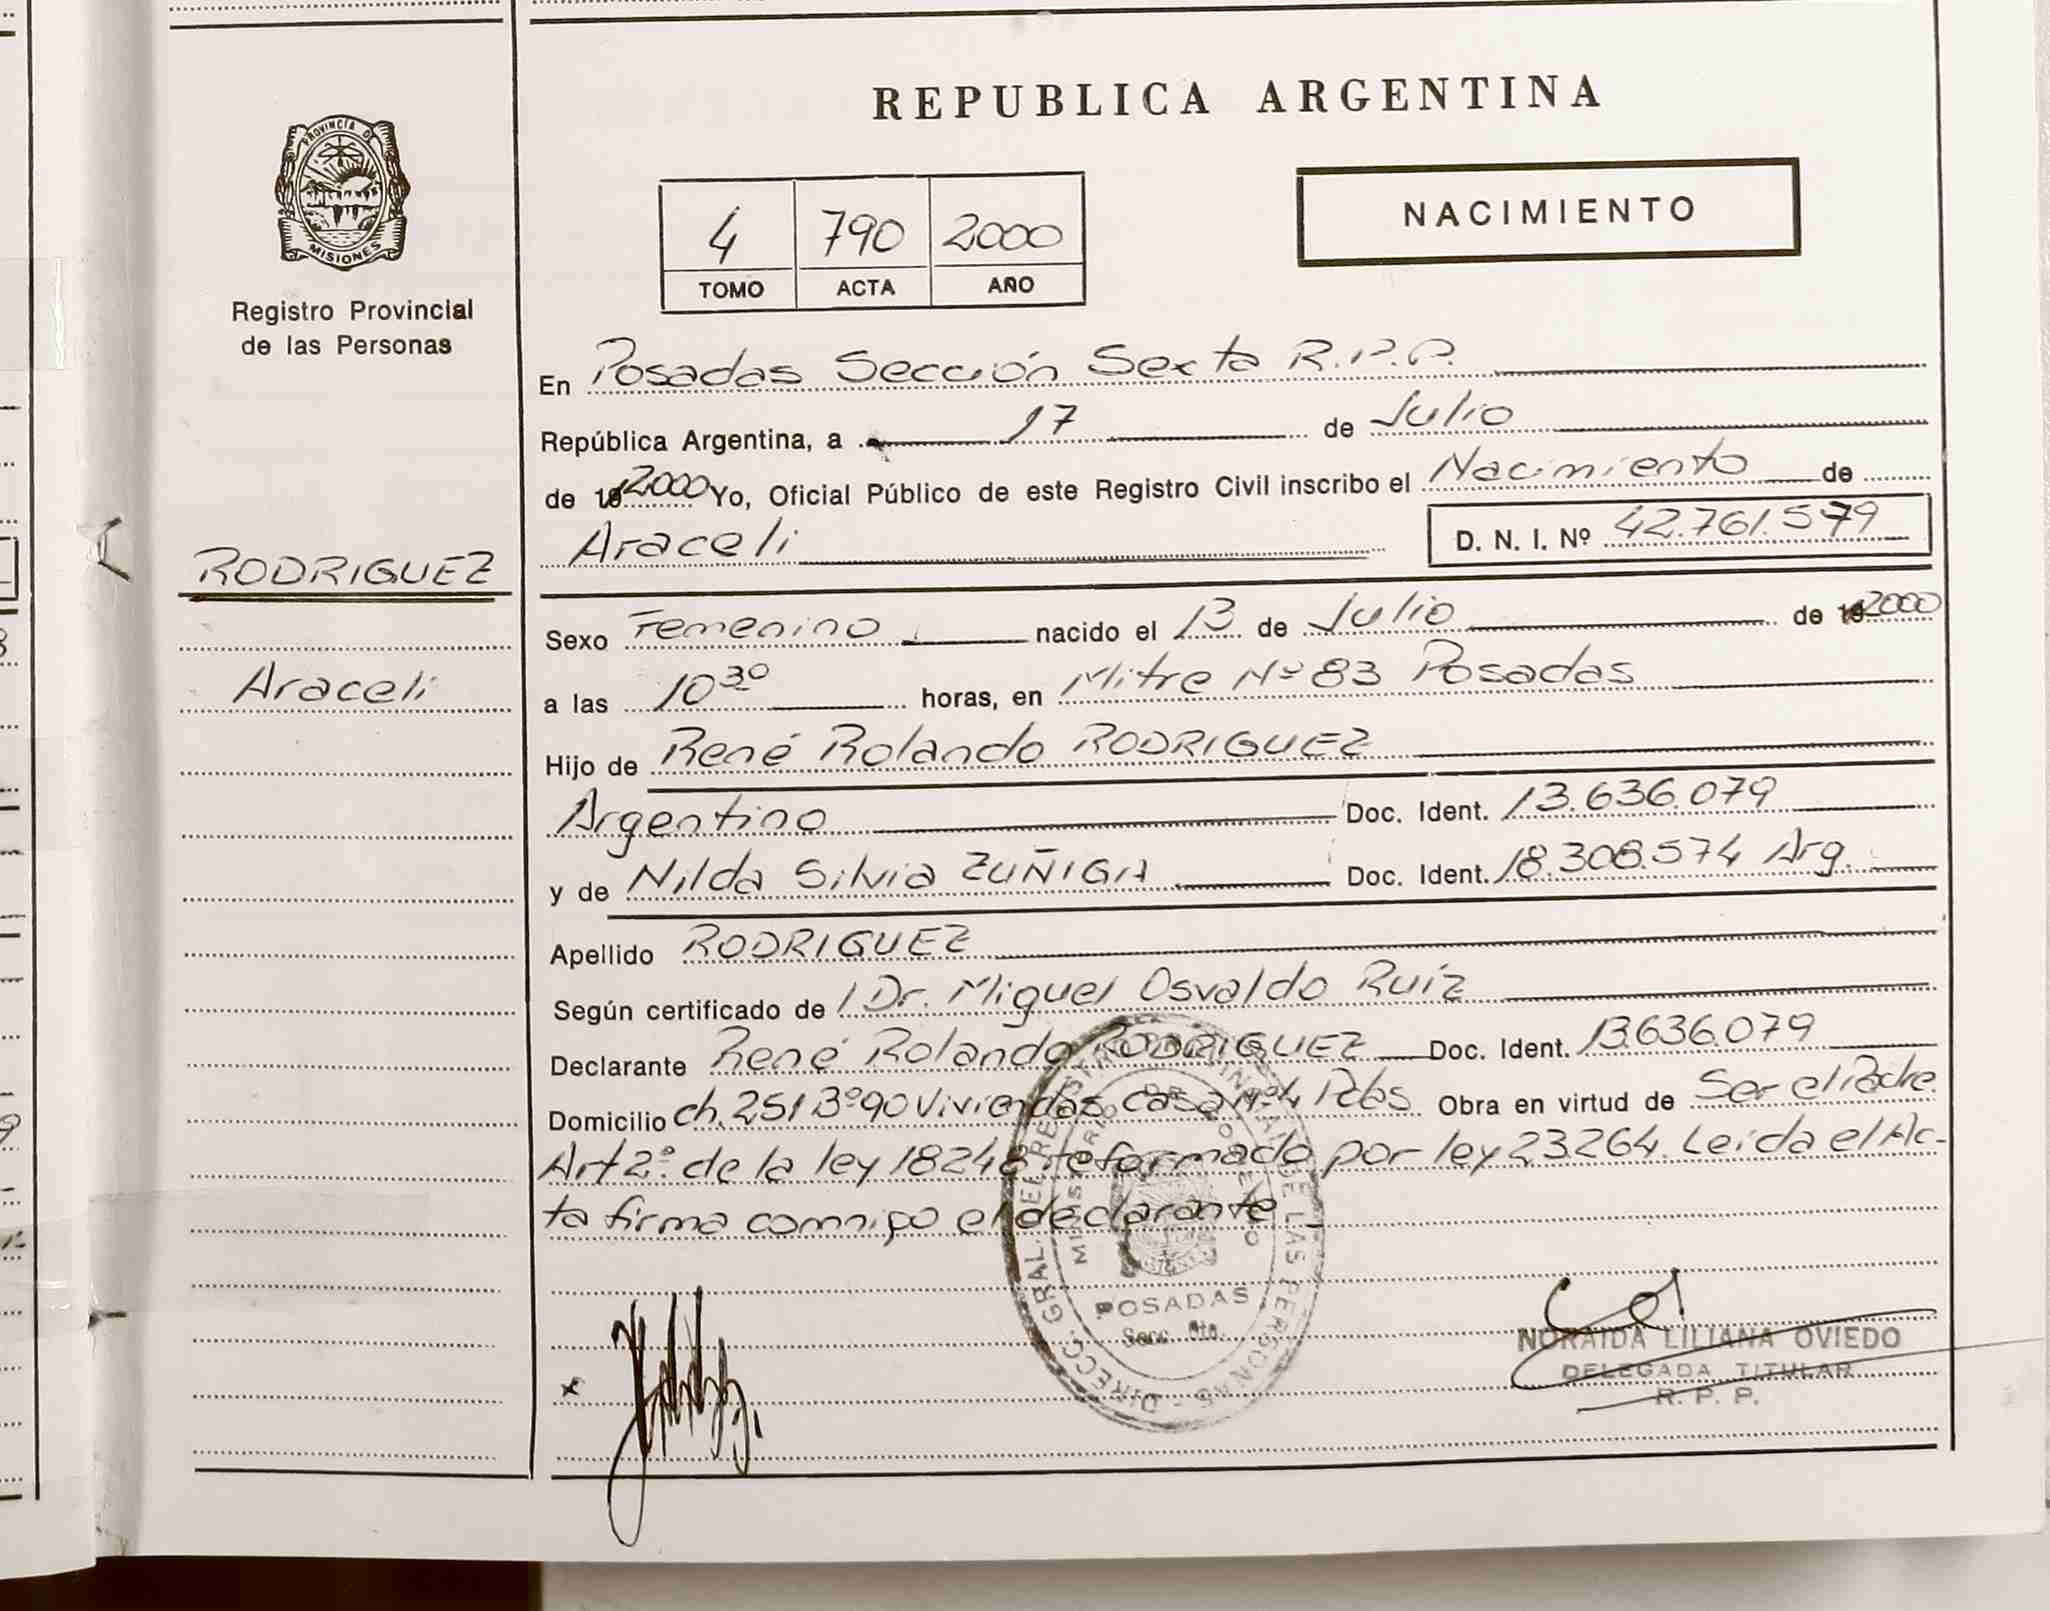 REPUBLICA ARGENTINA
PROVINCIA DE
MISIONES
Registro Provincial
de las Personas
4 790 2000
TOMO ACTA AÑO
NACIMIENTO
En Posadas Sección Sexta R.P.P.
República Argentina, a 17 de Julio
de 19 2000 Yo, Oficial Público de este Registro Civil inscribo el Nacimiento de
Araceli D. N. I. Nº 42.761.579
RODRIGUEZ
Araceli
Sexo Femenino nacido el 13 de Julio de 19 2000
a las 10 30 horas, en Mitre Nº 83 Posadas
Hijo de René Rolando RODRIGUEZ
Argentino Doc. Ident. 13.636.079
y de Nilda Silvia ZUÑIGA Doc. Ident. 18.308.574 Arg.
Apellido RODRIGUEZ
Según certificado de / Dr. Miguel Osvaldo Ruíz
Declarante René Rolando RODRIGUEZ Doc. Ident. 13.636.079
Domicilio ch. 251 Bº 90 Viviendas casa Nº 4 Pdas Obra en virtud de Ser el Padre
Art 2º de la ley 18248 reformado por ley 23.264. Leída el Ac-
ta firma conmigo el declarante
DIRECC. GRAL. DEL REGISTRO PROVINCIAL DE LAS PERSONAS
MINISTERIO DE GOBIERNO
POSADAS
Secc. 6ta.
x
NORAIDA LILIANA OVIEDO
DELEGADA TITULAR
R. P. P.